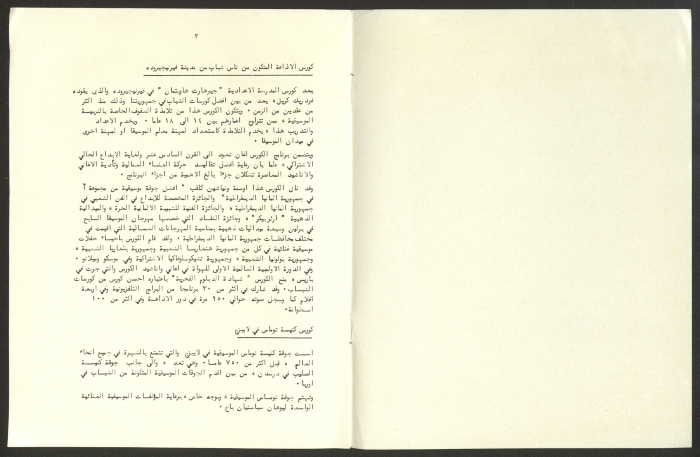 ٢
كورس الاذاعة المتكون من ناس شباب من مدينة فيرنيجيروده
يعد كورس المدرسة الاعدادية "جيرهارت هاوبتمان" في فيرنيجيروده والذي يقوده
فردريك كريل، يعد من بين افضل كورسات الشباب في جمهوريتنا وذلك منذ اكثر
من عقدين من الزمن. ويتكون الكورس هذا من تلامذة الصفوف الخاصة بالتربية
الموسيقية، ممن تتراوح اعمارهم بين ١٤ الى ١٨ عاما. ويخدم الاعداد
والتدريب هذا، يخدم التلامذة كاستعداد لمهنة معلم الموسيقا او لمهنة اخرى
في ميدان الموسيقا.
ويتضمن برنامج الكورس اغان تعود الى القرن السادس عشر ولغاية الابداع الحالي
الاشتراكي، علما بان رعاية افضل تقاليد حركة الغناء العمالية وتأدية الاغاني
والاناشيد المعاصرة تشكلان جزءا بالغ الاهمية من اجزاء البرنامج.
وقد نال الكورس هذا اوسمة ونياشين كلقب "افضل جوقة موسيقية من مجموعة أ
في جمهورية المانيا الديمقراطية" والجائزة المخصصة للابداع في الفن الشعبي في
جمهورية المانيا الديمقراطية، والجائزة الفنية للشبيبة الالمانية الحرة، والميدالية
الذهبية "ارتربيكر"، وجائزة النقاد التي خصصها مهرجان الموسيقا السابع
في برلين وسبعة ميداليات ذهبية بمناسبة المهرجانات العمالية التي اقيمت في
مختلف محافظات جمهورية المانيا الديمقراطية. ولقد قام الكورس باحياء حفلات
موسيقية غنائية في كل من جمهورية هنغاريا الشعبية وجمهورية بلغاريا الشعبية،
وجمهورية بولونيا الشعبية، وجمهورية تشيكوسلوفاكيا الاشتراكية وفي موسكو وميلانو.
وفي الدورة الاولمبية العالمية الاولى للهواة في اغاني واناشيد الكورس والتي جرت في
باريس، منح الكورس "شهادة الدبلوم الفخرية" باعتباره احسن كورس من كورسات
الشباب. وقد شارك في اكثر من ٣٠ برنامجا من البرامج التلفزيونية وفي اربعة
افلام كما وسجل صوته حوالي ٢٥٠ مرة في دور الاذاعة وفي اكثر من ١٠٠
اسطوانة.
كورس كنيسة توماس في لايبزج
اسست جوقة كنيسة توماس الموسيقية في لايبزج والتي تتمتع بالشهرة في جميع انحاء
العالم، قبل اكثر من ٧٥٠ عاما. وهي تعد، والى جانب جوقة كنيسة
الصليب في درسدن، من بين اقدم الجوقات الموسيقية المتكونة من الشباب في
اوربا.
وتهتم جوقة توماس الموسيقية، وبوجه خاص، برعاية المؤلفات الموسيقية الغنائية
الواسعة ليوهان سباستيان باخ.